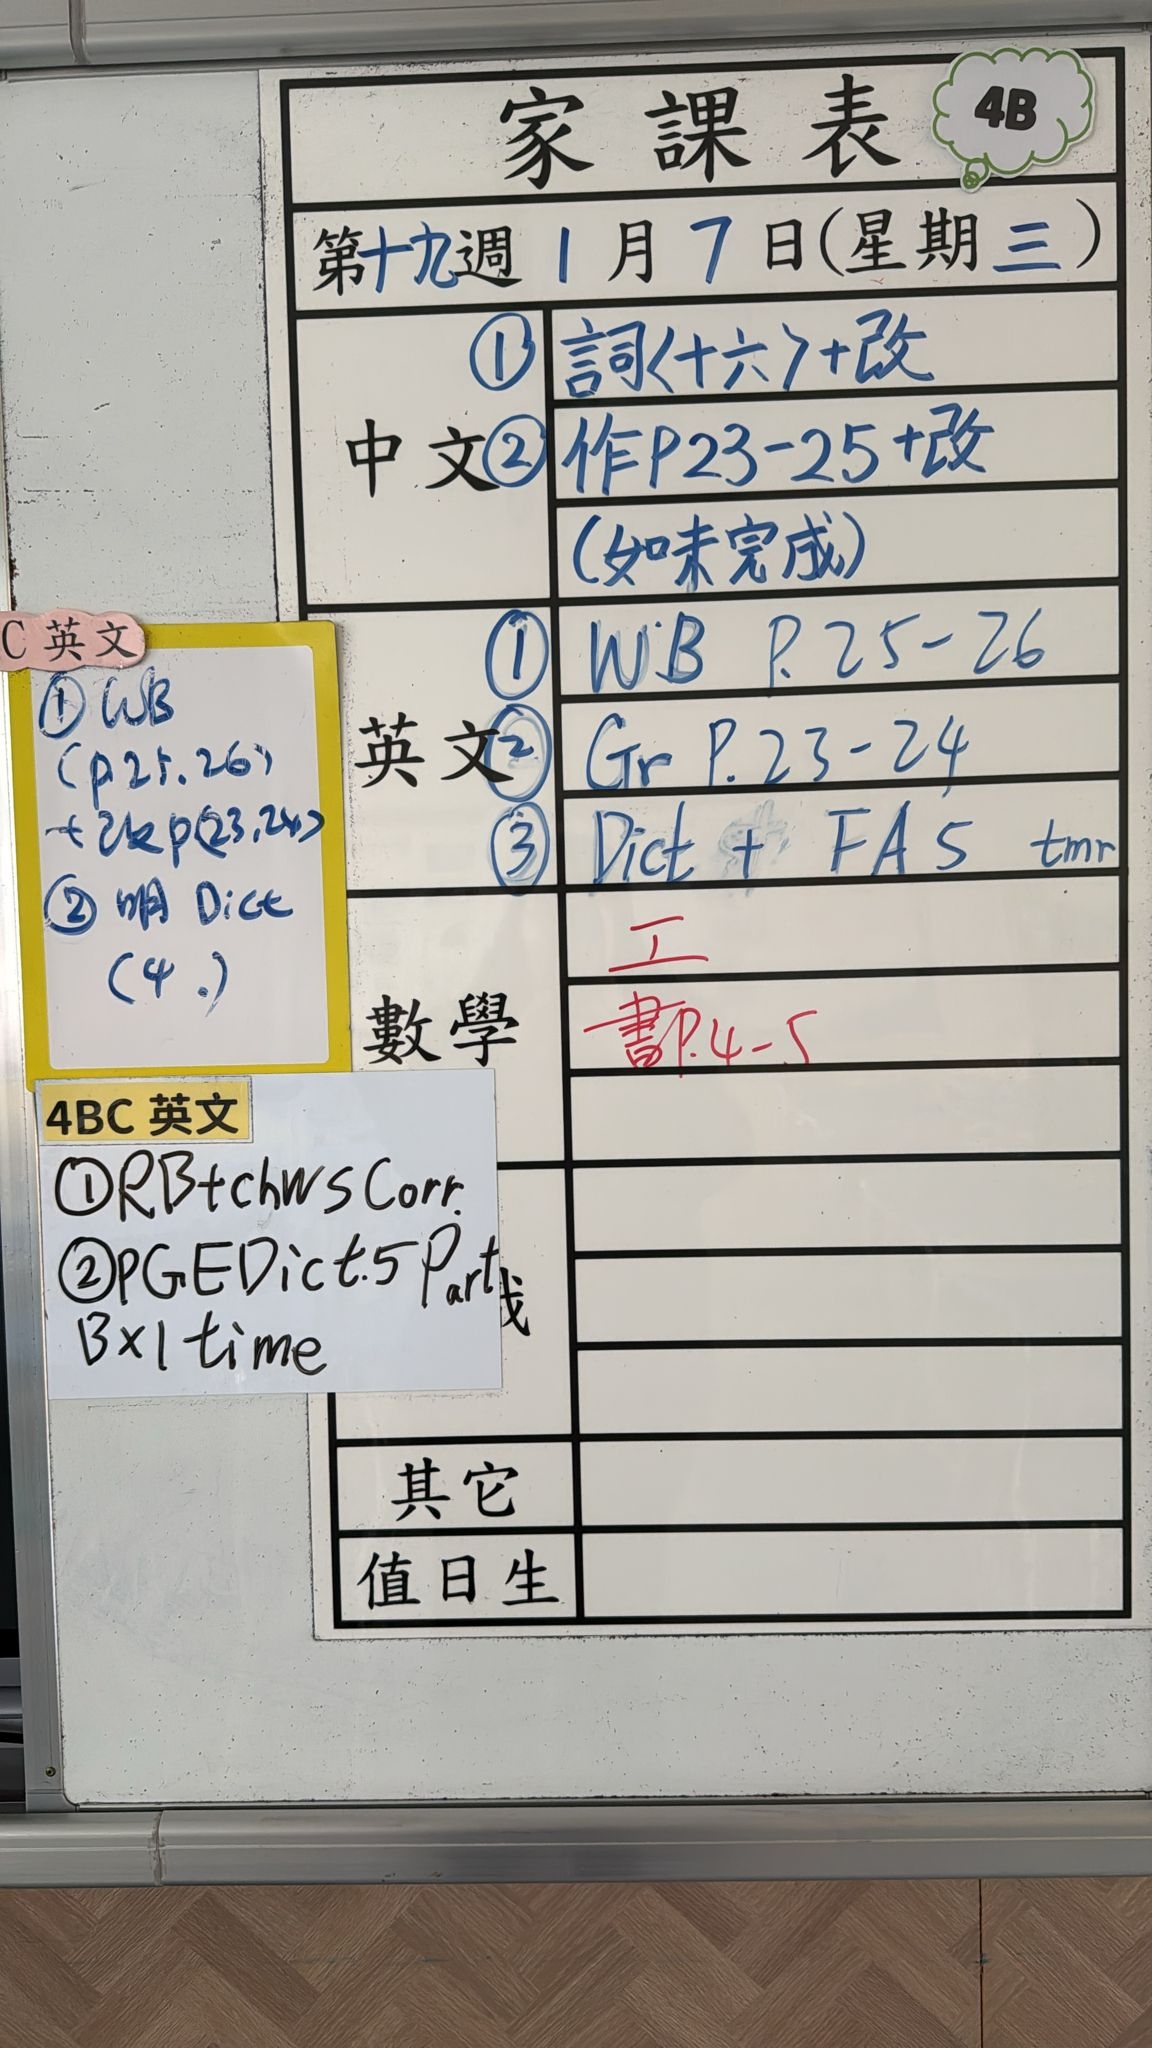 家課表
4B
第十九週 1月7日(星期三)
中文
① 詞〈十六〉+改
② 作P23-25+改
(如未完成)
英文
① WB P.25-26
② Gr P.23-24
③ Dict + FA5 tmr
數學
工
書P.4-5
其它
值日生
C 英文
① WB
(p25.26)
p(23.24)
② 明 Dict
(4.)
4BC 英文
①RB+chWS Corr.
②PGEDict.5 Part
B×1 time